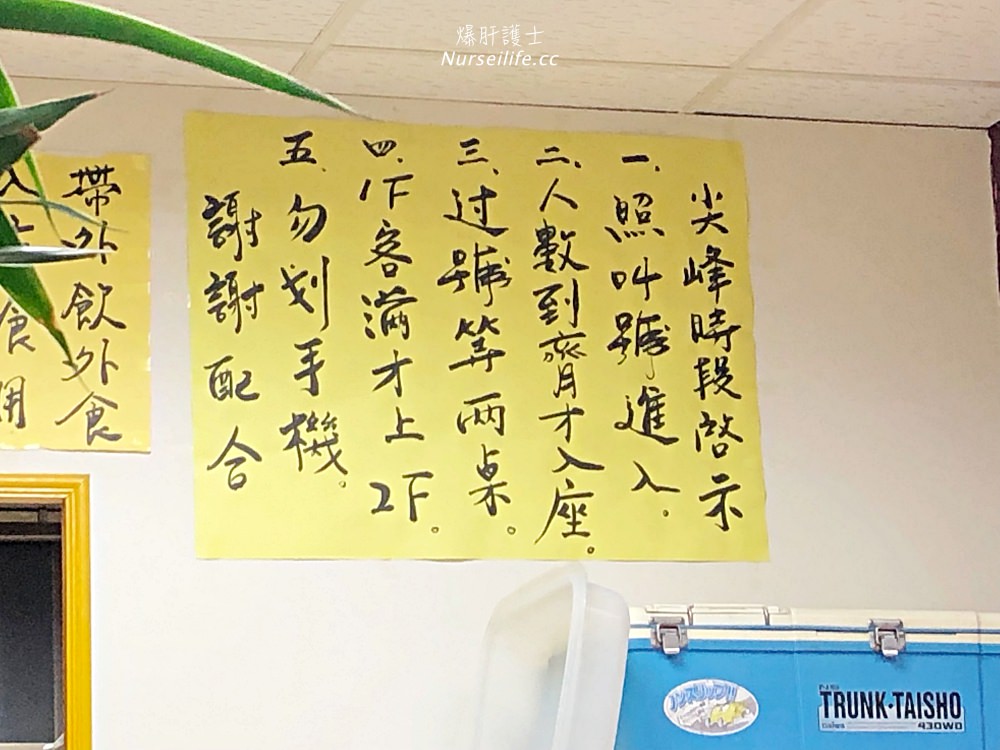 爆肝護士
Nurseilife.cc
尖峰時段啓示
一、照叫號進入。
二、人數到齊才入座。
三、过號等两桌。
四、1F客滿才上2F。
五、勿划手機。
謝謝配合
帶外飲外食
食用
ノンスリップ!!
TRUNK・TAISHO
430WD